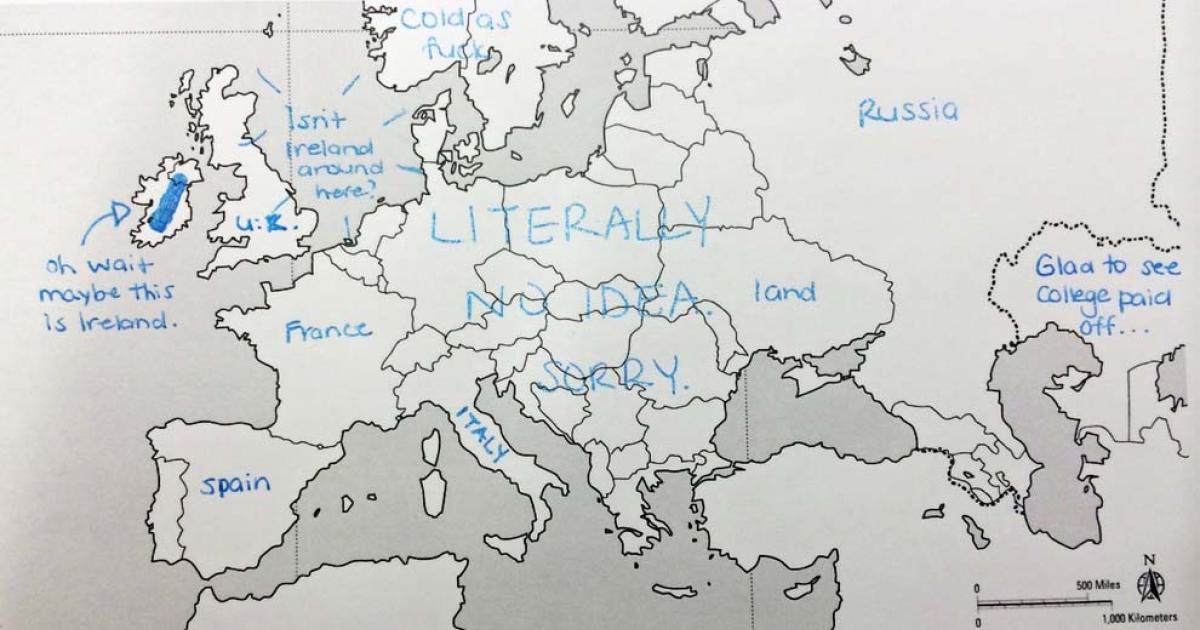 Cold as
fuck
Isn't
Ireland
around
here?
Russia
U.K.
LITERALLY
NO IDEA.
SORRY.
land
oh wait
maybe this
is Ireland.
France
Glad to see
College paid
off...
ITALY
Spain
N
0
500 Miles
0
1,000 Kilometers